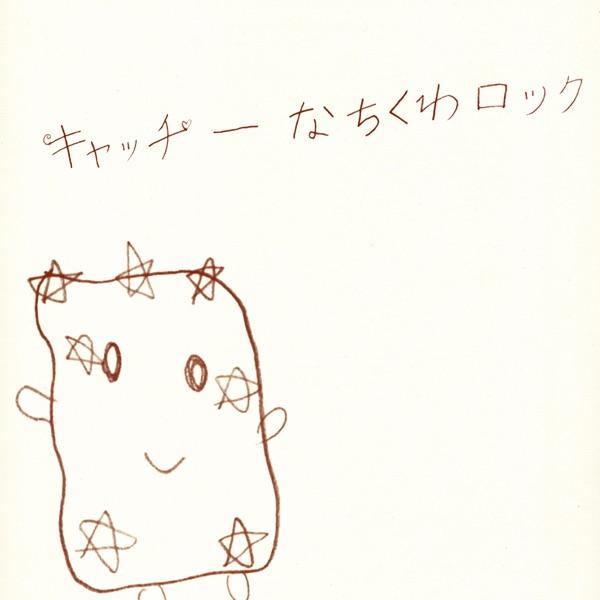 キャッチーなちくわロック